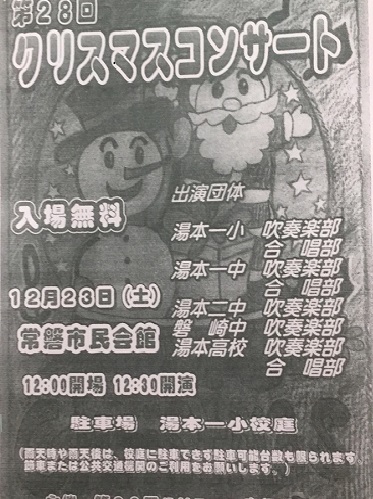 第28回
クリスマスコンサート
出演団体
入場無料
湯本一小 吹奏楽部
合唱部
湯本一中 吹奏楽部
合唱部
12月23日(土)
湯本二中 吹奏楽部
磐崎中 吹奏楽部
常磐市民会館
湯本高校 吹奏楽部
合唱部
12:00開場 12:30開演
駐車場 湯本一小校庭
(雨天時や雨天後は、校庭に駐車できず駐車可能台数も限られます
徒歩または公共交通機関のご利用をお願いします。)